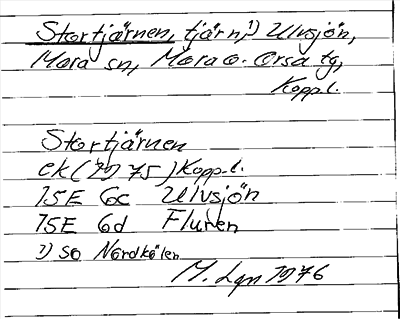 Stortjärnen, tjärn,¹⁾ Ulvsjön,
Mora sn, Mora o. Orsa tg,
Kopp.l.
Stortjärnen
ek (1975) Kopp.l.
15E 6c Ulvsjön
15E 6d Fluren
1) SO Nordkölen
M. Lgn 1976